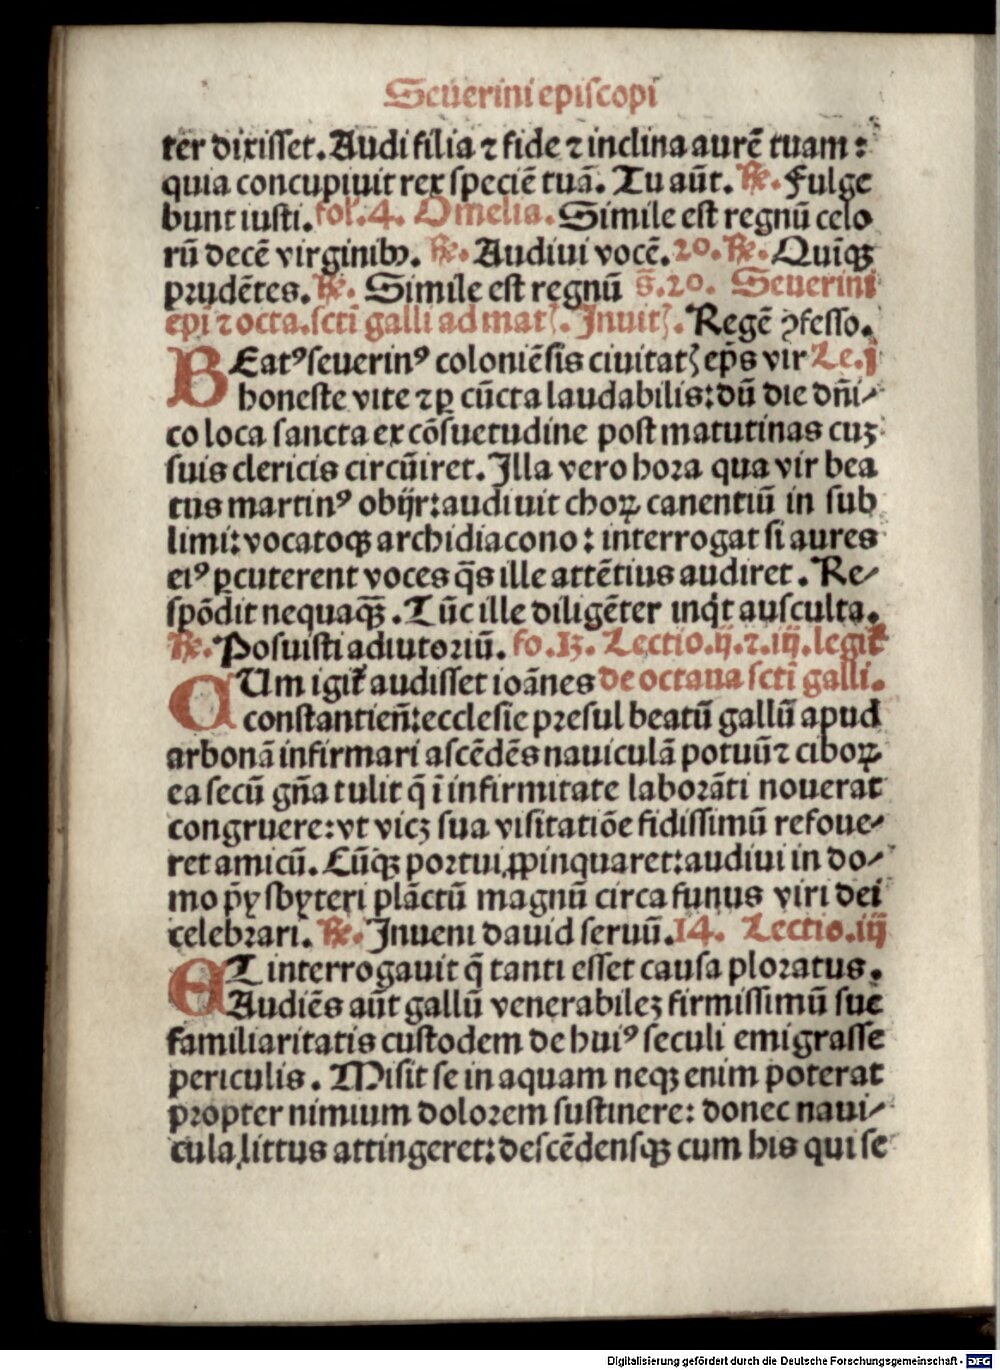 Seuerini episcopi
ter dixisset. Audi filia ⁊ fide ⁊ inclina aurē tuam :
quia concupiuit rex speciē tuā. Tu aūt. ℟. Fulge
bunt iusti. fol. 4. Omelia. Simile est regnū celo
rū decē virginibꝫ. ℟. Audiui vocē. 20. ℟. Quīqꝫ
prudētes. ℟. Simile est regnū s̄. 20. Seuerini
ep̄i ⁊ octa. sctī galli ad mat. Inuit. Regē ꝯfesso.
BEatꝰ seuerinꝰ coloniēsis ciuitatꝭ ep̄s vir Le. j
honeste vite ⁊ ꝑ cūcta laudabilis: dū die dn̄i-
co loca sancta ex cōsuetudine post matutinas cuꝫ
suis clericis circūiret. Illa vero hora qua vir bea
tus martinꝰ obijt: audiuit choꝝ canentiū in sub
limi: vocatoqꝫ archidiacono : interrogat si aures
eiꝰ ꝑcuterent voces q̄s ille attētius audiret. Re-
spōdit nequaqꝫ̄. Tūc ille diligēter inq̇t ausculta.
℟. Posuisti adiutoriū. fo. 13. Lectio. ij. ⁊. iij. legit̄
CUm igit̄ audisset ioānes de octaua sctī galli.
constantien̄: ecclesie presul beatū gallū apud
arbonā infirmari ascēdēs nauiculā potuū ⁊ ciboꝝ
ea secū gn̄a tulit q̄ ī infirmitate laborāti nouerat
congruere: vt vicꝫ sua visitatiōe fidissimū refoue-
ret amicū. Cūqꝫ portui ꝓpinquaret: audiui in do-
mo p̄ysbyteri plāctū magnū circa funus viri dei
celebrari. ℟. Inueni dauid seruū. 14. Lectio. iij
ET interrogauit q̄ tanti esset causa ploratus.
Audiēs aūt gallū venerabileꝫ firmissimū sue
familiaritatis custodem de huiꝰ seculi emigrasse
periculis. Misit se in aquam neqꝫ enim poterat
propter nimium dolorem sustinere: donec naui-
cula littus attingeret: descēdensqꝫ cum his qui se
Digitalisierung gefördert durch die Deutsche Forschungsgemeinschaft - DFG